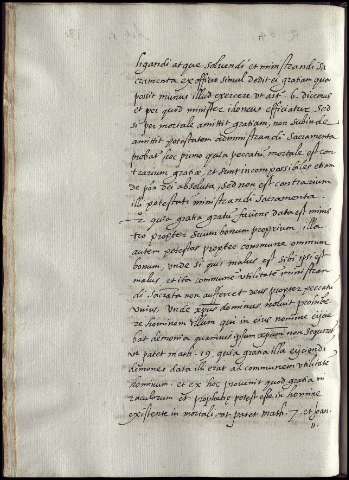 ligandi atque solvendi et ministrandi sa
cramenta ex officio simul dedit ei gratiam qua
possit munus illud exercere ut ast. 6. dicemus
et per quod minister idoneus efficiatur. Sed
si per mortale amittit gratiam, non subinde
amittit potestatem administrandi Sacramenta
probat hoc primo quia peccatum mortale est con
trarium gratiæ, et sunt incompossibiles etiam
de pōa dei absoluta, sed non est contrarium
illi potestati ministrandi Sacramenta.
2. quia gratia gratū faciens data est minis
tro propter suum bonum proprium illa
autem potestas propter commune omnium
bonum, unde si quis malus est sibi ipsi est
malus et ita commune utilitate ministran
di Sacrāta non auffercet deus propter peccatū
unius. Unde xp̄us dominus noluit prohibe
re hominem illum qui in eius nomine eijcie
bat demonia quamvis ipsum xpum non sequeretur
ut patet math. 19. quia gratia illa eijciendi
demones data illi erat ad communem utilitate
hominum. et ex hoc provenit quod gratia mi
raculorum et prophetiæ potest esse in homine
existente in mortali. ut patet math. 7. et Joan.
11.